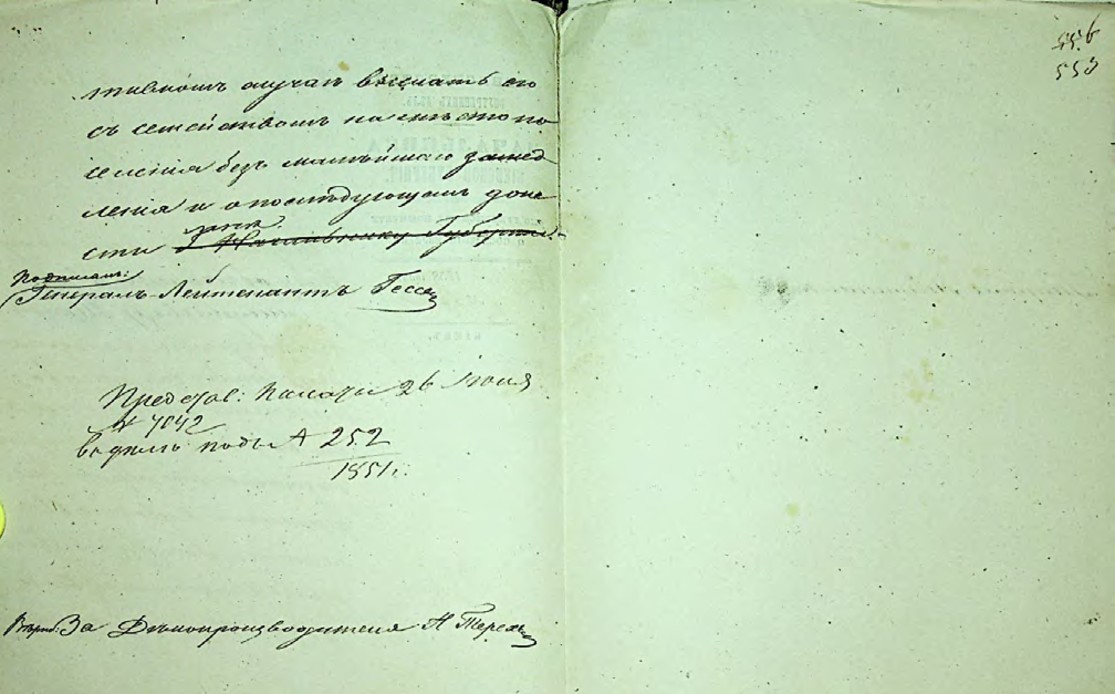 тивномъ случаѣ выслать его
съ семействомъ на мѣсто по
селенія безъ малѣйшаго замед
ленія и о послѣдующемъ доне
сти
Г. Начальнику Губерніи.
Подписалъ:
Генералъ-Лейтенантъ Гессе
Представ: Палаты 26 Іюня
№ 7042
въ дѣлѣ подъ № 252
1851 г.
За Дѣлопроизводителя Н
556
553